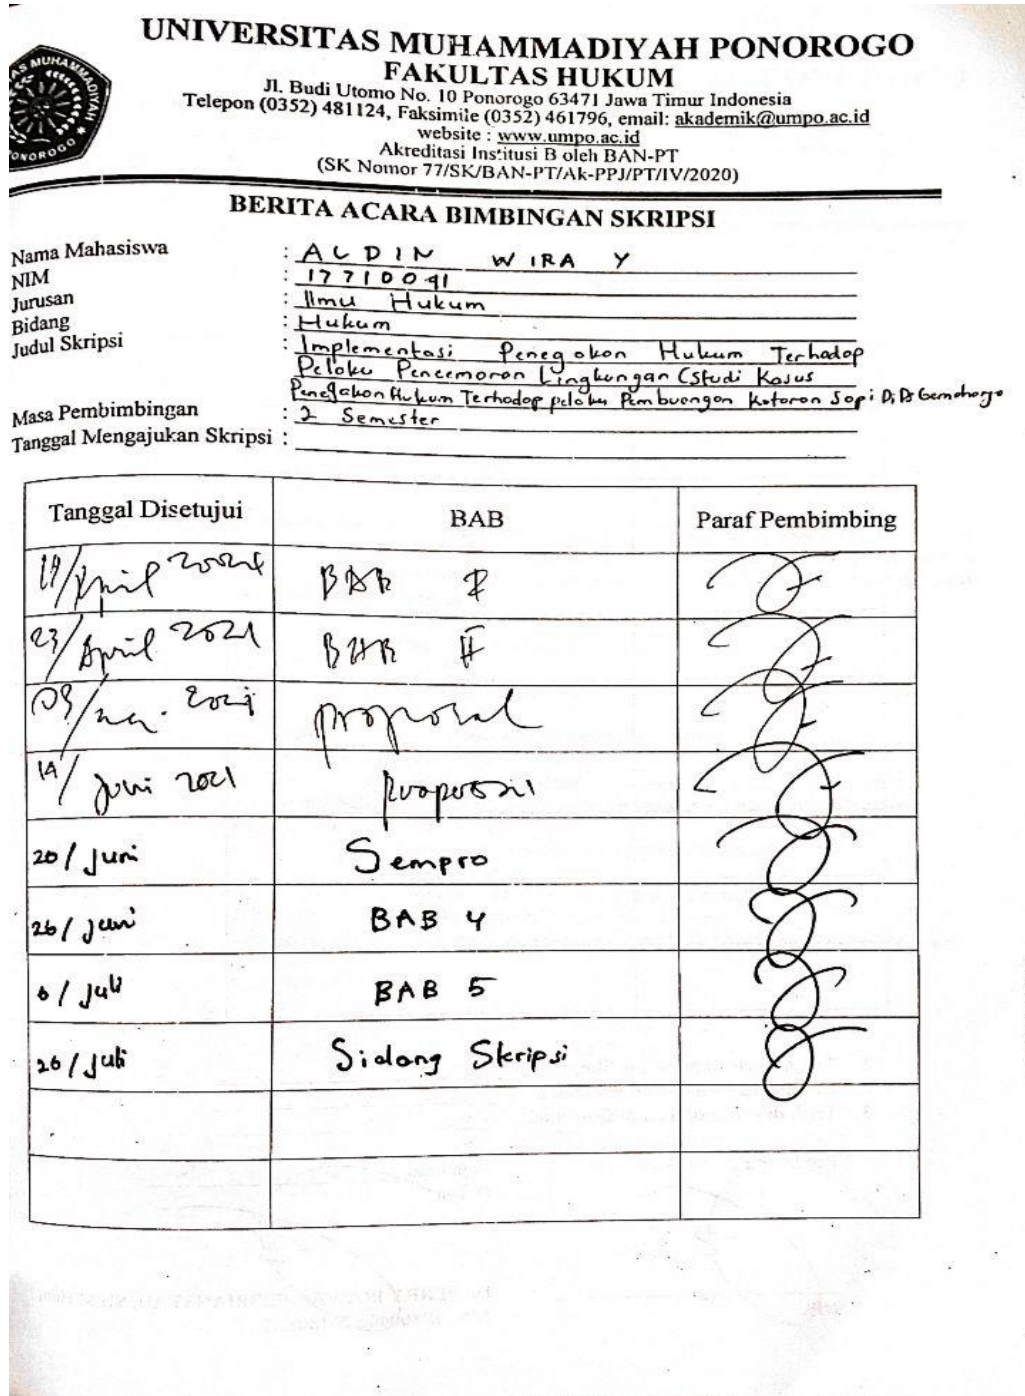 UNIVERSITAS MUHAMMADIYAH PONOROGO
FAKULTAS HUKUM
Jl. Budi Utomo No. 10 Ponorogo 63471 Jawa Timur Indonesia
Telepon (0352) 481124, Faksimile (0352) 461796, email: akademik@umpo.ac.id
website : www.umpo.ac.id
Akreditasi Institusi B oleh BAN-PT
(SK Nomor 77/SK/BAN-PT/Ak-PPJ/PT/IV/2020)
BERITA ACARA BIMBINGAN SKRIPSI
Nama Mahasiswa : ALDIN WIRA Y
NIM : 17710091
Jurusan : Ilmu Hukum
Bidang : Hukum
Judul Skripsi : Implementasi Penegakan Hukum Terhadap
Pelaku Pencemaran Lingkungan (Studi Kasus
Penegakan Hukum Terhadap pelaku Pembuangan Kotoran Sapi Di
Masa Pembimbingan : 2 Semester
Tanggal Mengajukan Skripsi :
Tanggal Disetujui BAB Paraf Pembimbing
19/April 2021 BAB I
23/April 2021 BAB II
2021 proposal
14/ Juni 2021 proposal
20/ Juni Sempro
26/ Juni BAB 4
6/ Juli BAB 5
26/ Juli Sidang Skripsi